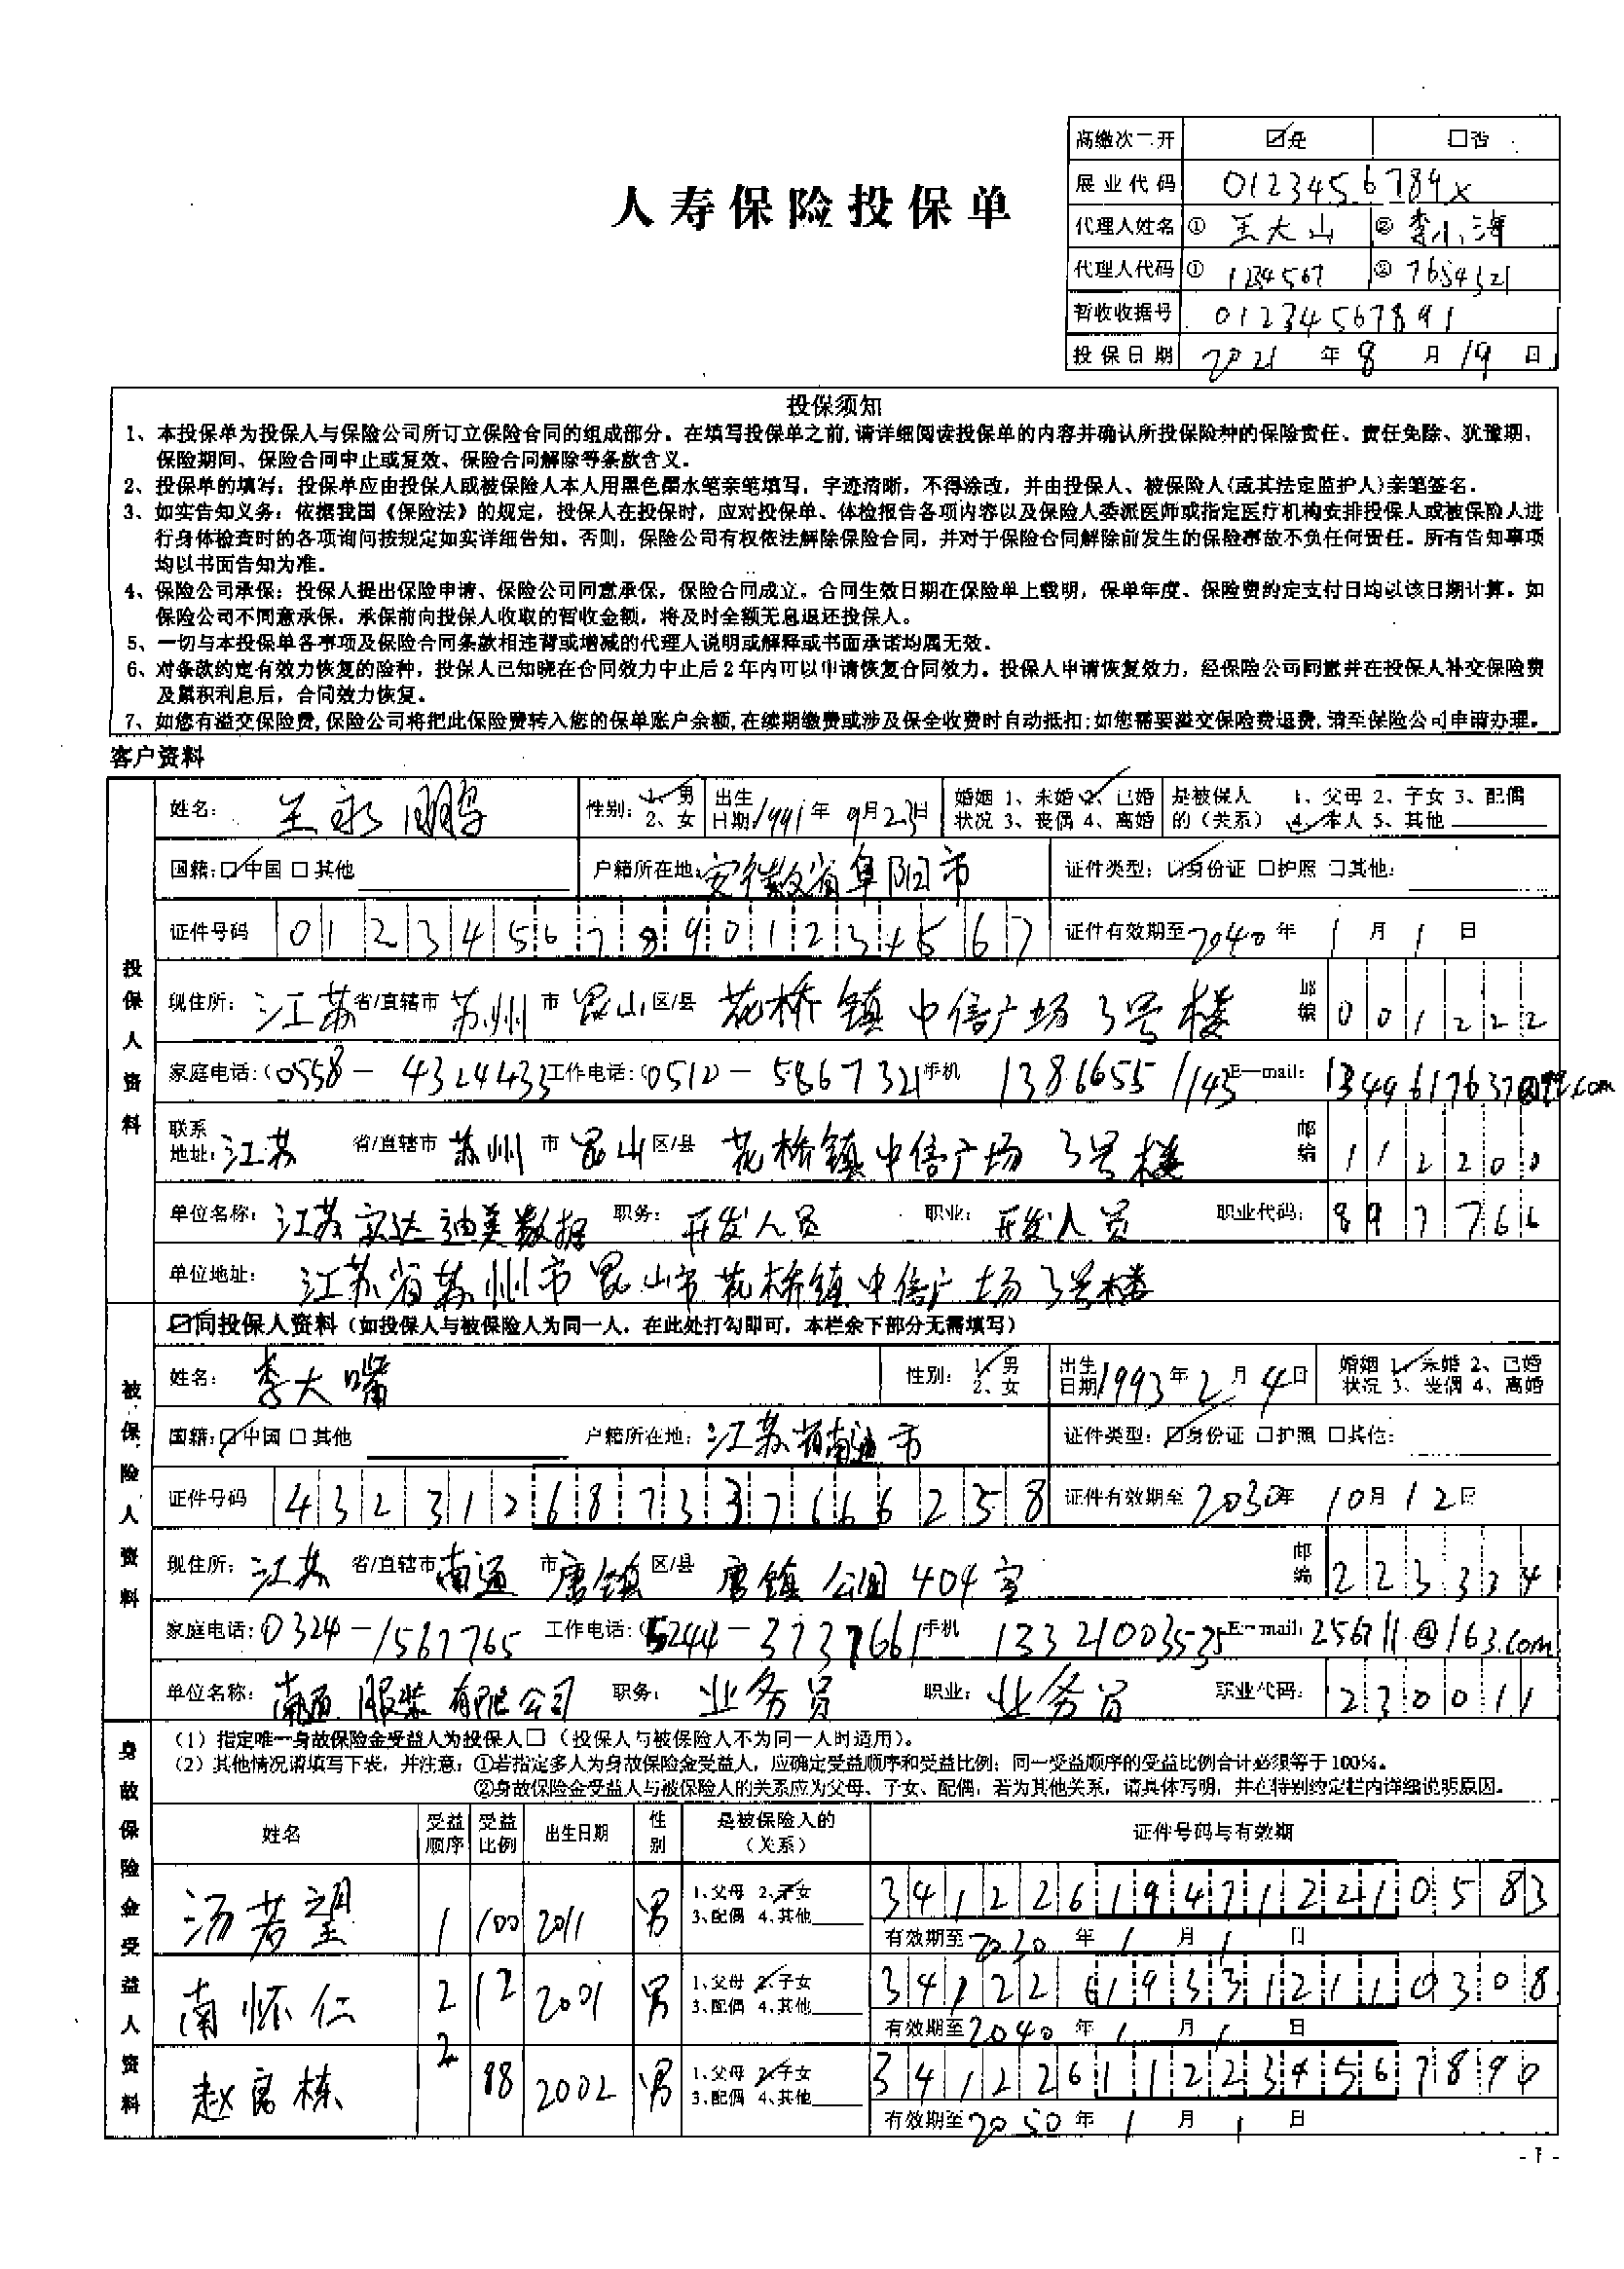 高缴次二开 ☑是 □否
展业代码 0123456789x
人寿保险投保单
代理人姓名 ① 王大山 ② 李小海
代理人代码 ① 1234567 ② 7654321
暂收收据号 01234567891
投保日期 2021 年 8 月 19 日
投保须知
1、本投保单为投保人与保险公司所订立保险合同的组成部分。在填写投保单之前,请详细阅读投保单的内容并确认所投保险种的保险责任、责任免除、犹豫期、
保险期间、保险合同中止或复效、保险合同解除等条款含义。
2、投保单的填写：投保单应由投保人或被保险人本人用黑色墨水笔亲笔填写，字迹清晰，不得涂改，并由投保人、被保险人(或其法定监护人)亲笔签名。
3、如实告知义务：依据我国《保险法》的规定，投保人在投保时，应对投保单、体检报告各项内容以及保险人委派医师或指定医疗机构安排投保人或被保险人进
行身体检查时的各项询问按规定如实详细告知。否则，保险公司有权依法解除保险合同，并对于保险合同解除前发生的保险事故不负任何责任。所有告知事项
均以书面告知为准。
4、保险公司承保：投保人提出保险申请、保险公司同意承保，保险合同成立。合同生效日期在保险单上载明，保单年度、保险费约定支付日均以该日期计算。如
保险公司不同意承保，承保前向投保人收取的暂收金额，将及时全额无息退还投保人。
5、一切与本投保单各事项及保险合同条款相违背或增减的代理人说明或解释或书面承诺均属无效。
6、对条款约定有效力恢复的险种，投保人已知晓在合同效力中止后2年内可以申请恢复合同效力。投保人申请恢复效力，经保险公司同意并在投保人补交保险费
及累积利息后，合同效力恢复。
7、如您有溢交保险费,保险公司将把此保险费转入您的保单账户余额,在续期缴费或涉及保全收费时自动抵扣;如您需要溢交保险费退费,请至保险公司申请办理。
客户资料
投保人资料
姓名： 王永鹏 性别： 1、男 2、女 出生日期 1991 年 9 月 23 日 婚姻状况 1、未婚 2、已婚 3、丧偶 4、离婚 是被保人的（关系） 1、父母 2、子女 3、配偶 4、本人 5、其他
国籍：☑中国 □其他 户籍所在地：安徽省阜阳市 证件类型：☑身份证 □护照 □其他：
证件号码 012345678901234567 证件有效期至 2040 年 1 月 1 日
现住所： 江苏 省/直辖市 苏州 市 昆山 区/县 花桥镇中信广场3号楼 邮编 001222
家庭电话：(0558 - 4324433 工作电话：(0512) - 5867321 手机 13866551143 E-mail: 1349617637@qq.com
联系地址： 江苏 省/直辖市 苏州 市 昆山 区/县 花桥镇中信广场 3号楼 邮编 112200
单位名称： 江苏实达迪美数据 职务： 开发人员 职业： 开发人员 职业代码： 897766
单位地址： 江苏省苏州市昆山市花桥镇中信广场3号楼
被保险人资料
☑同投保人资料（如投保人与被保险人为同一人，在此处打勾即可，本栏余下部分无需填写）
姓名： 李大嘴 性别： 1、男 2、女 出生日期 1993 年 2 月 4 日 婚姻状况 1、未婚 2、已婚 3、丧偶 4、离婚
国籍：☑中国 □其他 户籍所在地： 江苏省南通市 证件类型：☑身份证 □护照 □其他：
证件号码 432312687337666258 证件有效期至 2030 年 10 月 12 日
现住所： 江苏 省/直辖市 南通 市 唐镇 区/县 唐镇公园404室 邮编 223334
家庭电话：0324 - 1567765 工作电话：(5244 - 3737661 手机 13321003535 E-mail: 256711@163.com
单位名称： 南通服装有限公司 职务： 业务员 职业： 业务员 职业代码： 230011
身故保险金受益人资料
（1）指定唯一身故保险金受益人为投保人□（投保人与被保险人不为同一人时适用）。
（2）其他情况请填写下表，并注意：①若指定多人为身故保险金受益人，应确定受益顺序和受益比例；同一受益顺序的受益比例合计必须等于100%。
②身故保险金受益人与被保险人的关系应为父母、子女、配偶，若为其他关系，请具体写明，并在特别约定栏内详细说明原因。
姓名 受益顺序 受益比例 出生日期 性别 是被保险人的（关系） 证件号码与有效期
汤若望 1 100 2011 男 1、父母 2、子女 3、配偶 4、其他 341226194712210583
有效期至 2030 年 1 月 1 日
南怀仁 2 12 2001 男 1、父母 2、子女 3、配偶 4、其他 341226193312110308
有效期至 2040 年 1 月 1 日
赵离栋 2 88 2002 男 1、父母 2、子女 3、配偶 4、其他 341226112234567890
有效期至 2050 年 1 月 1 日
- 1 -